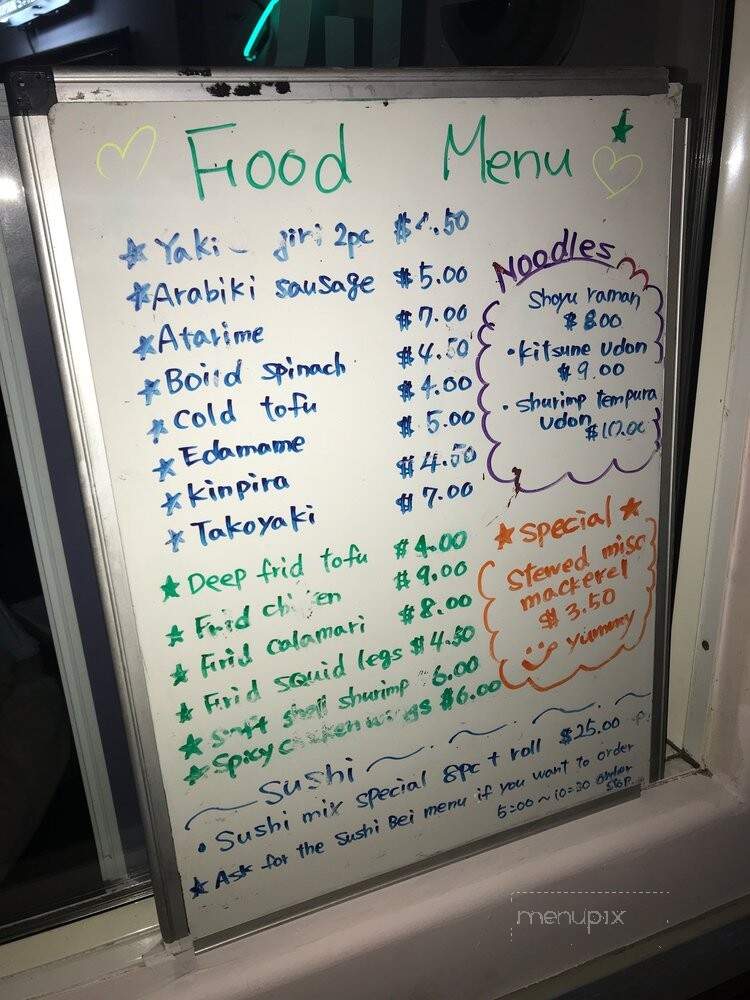 Food Menu
Yaki jiri 2pc
Arabiki sausage $5.00
Atarime $7.00
Boild spinach $4.50
Cold tofu $4.00
Edamame $5.00
Kinpira $4.50
Takoyaki $7.00
Deep frid tofu $4.00
Frid $9.00
Firid calamari $8.00
Firid squid legs $4.50
Soft shell shurimp 6.00
Spicy wings $6.00
Noodles
Shoyu raman
$8.00
• kitsune udon
$9.00
• shurimp tempura
udon $10.00
Special
Stewed miso
mackerel
$3.50
yummy
Sushi
• Sushi mix special 8pc + roll $25.00
Ask for the Sushi Bei menu if you want to order
5:00 ~ 10:30 order
stop
menupix